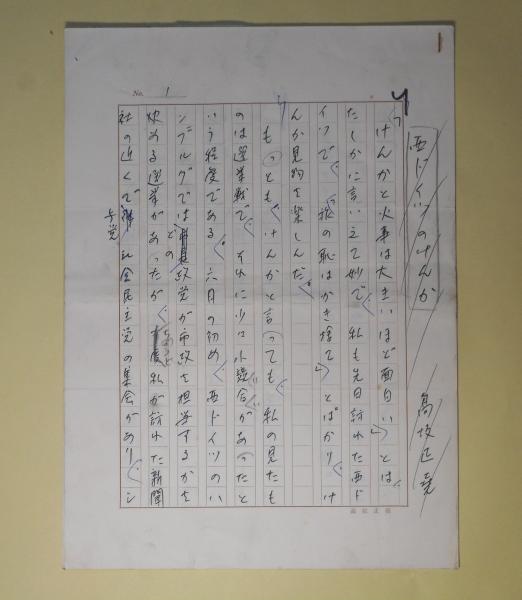 No. 1
西ドイツのけんか
高坂正堯
「けんかと火事は大きいほど面白い」とは、
たしかに言い立て妙で、私も先日訪れた西ド
イツで、「旅の恥はかき捨て」とばかり、け
んか見物を楽しんだ。
もっとも、けんかと言っても、私の見たも
のは選挙戦で、それに少々小競合いがあったと
いう程度である。六月の初め、西ドイツのハ
ンブルグではどの政党が市政を担当するかを
決める選挙があったが、ちょうど私が訪れた新聞
社の近くで、与党社会民主党の集会があり、シ